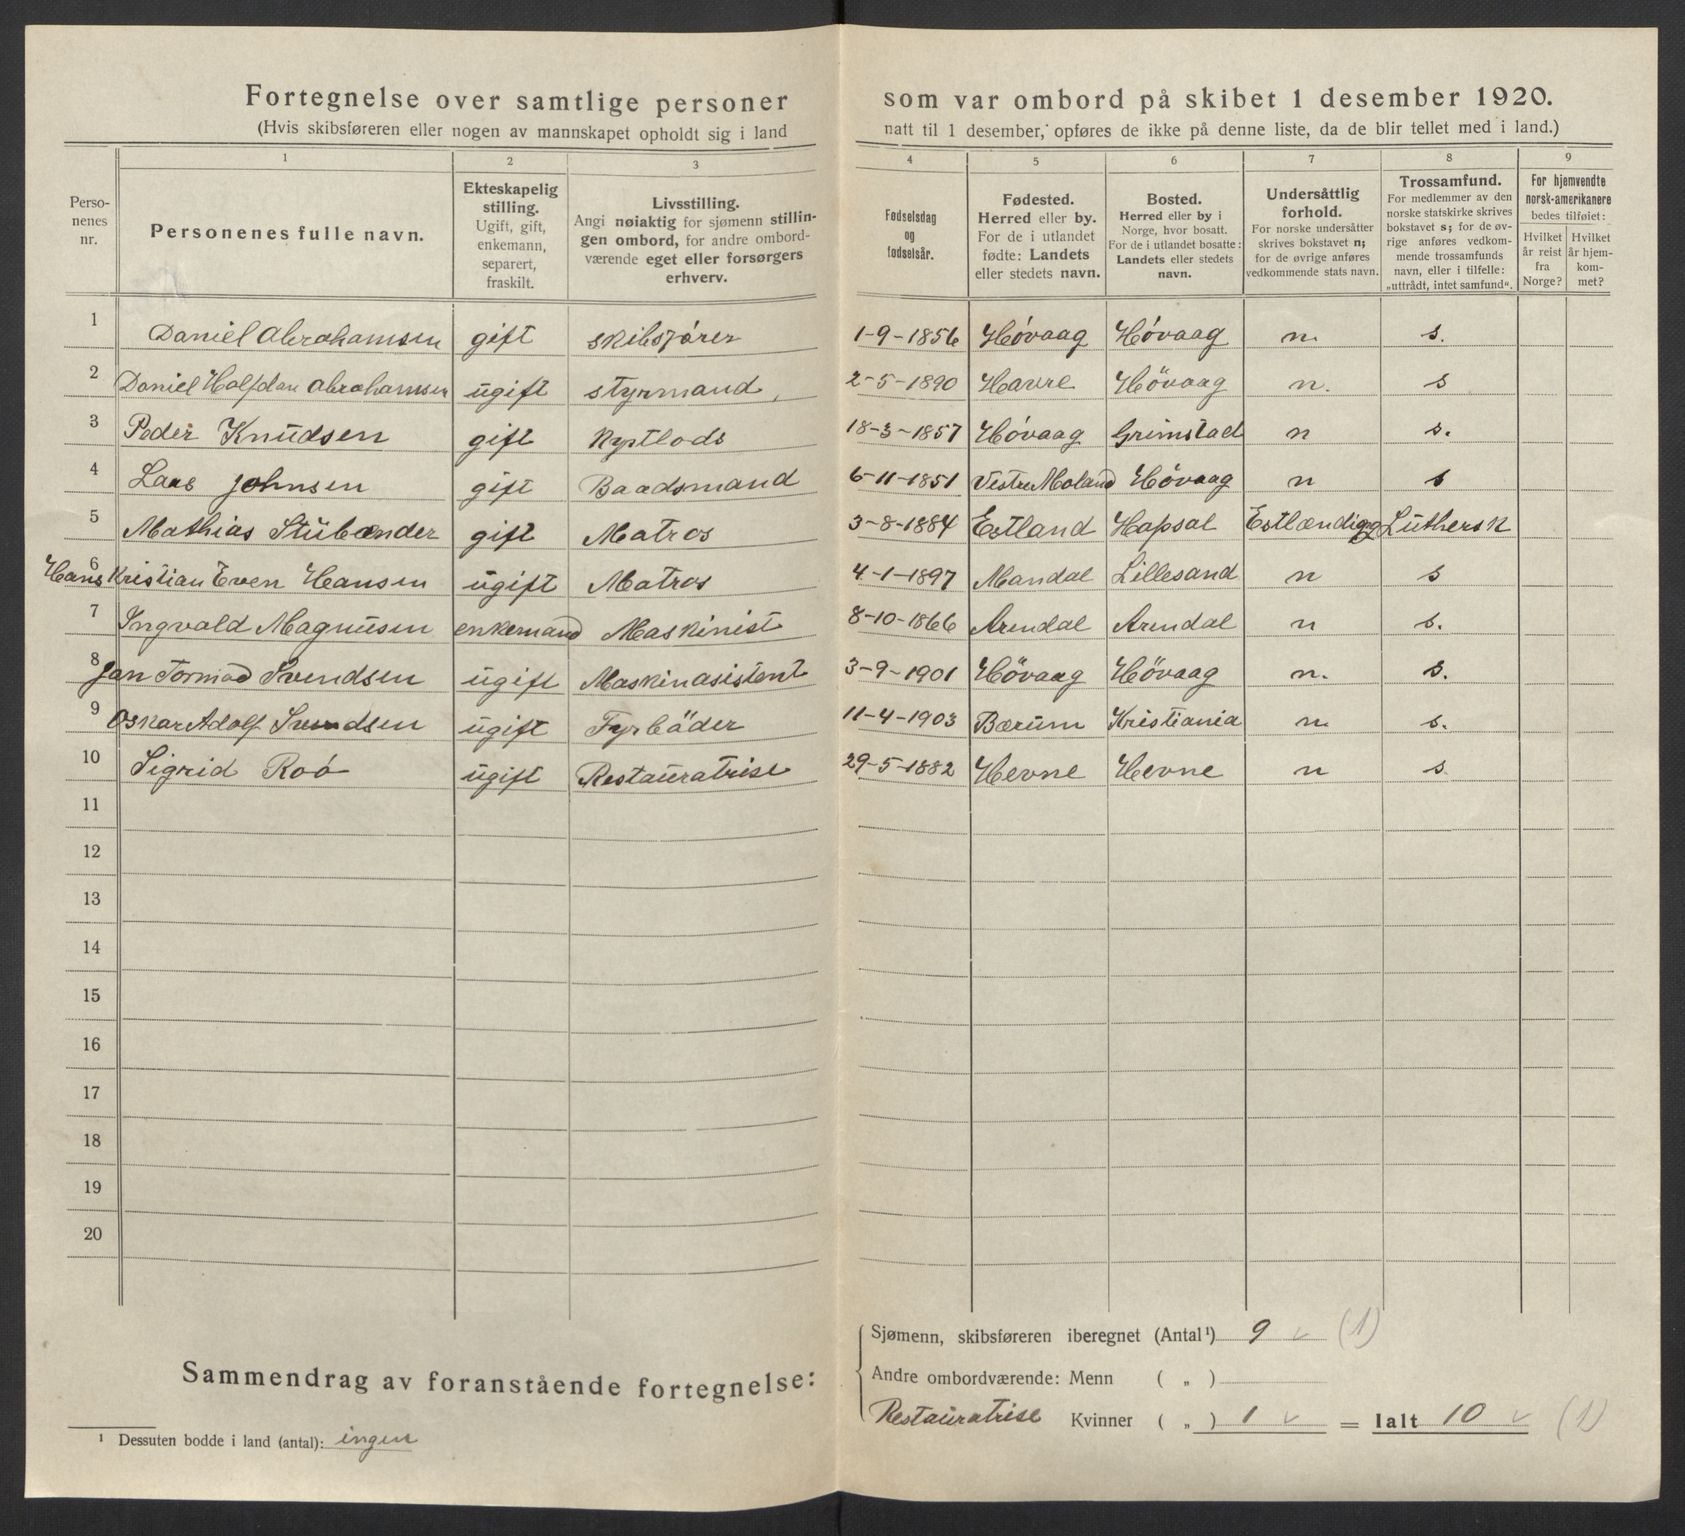 Fortegnelse over samtlige personer som var ombord på skibet 1 desember 1920.
(Hvis skibsføreren eller nogen av mannskapet opholdt sig i land natt til 1 desember, opføres de ikke på denne liste, da de blir tellet med i land.)
1 2 3 4 5 6 7 8 9
Personenes nr.
Personenes fulle navn.
Ekteskapelig stilling. Ugift, gift, enkemann, separert, fraskilt.
Livsstilling. Angi nøiaktig for sjømenn stillingen ombord, for andre ombordværende eget eller forsørgers erhverv.
Fødselsdag og fødselsår.
Fødested. Herred eller by. For de i utlandet fødte: Landets eller stedets navn.
Bosted. Herred eller by i Norge, hvor bosatt. For de i utlandet bosatte: Landets eller stedets navn.
Undersåttlig forhold. For norske undersåtter skrives bokstavet n; for de øvrige anføres vedkommende stats navn.
Trossamfund. For medlemmer av den norske statskirke skrives bokstavet s; for de øvrige anføres vedkommende trossamfunds navn, eller i tilfelle: „uttrådt, intet samfund“.
For hjemvendte norsk-amerikanere bedes tilføiet:
Hvilket år reist fra Norge?
Hvilket år hjemkommet?
1 Daniel Abrahamsen gift skibsfører 1-9-1856 Hóvaag Hóvaag n. s.
2 Daniel Halfdan Abrahamsen ugift styrmand, 2-5-1890 Havre Hövaag n. s
3 Peder Knudsen gift Kystlods 18-3-1857 Hóvaag Grimstad n s.
4 Lars Johnsen gift Baadsmand 6-11-1851 Vestre Moland Hövaag n s
5 Mathias Stübender gift Matros 3-8-1884 Estland Hapsal Estlændigg Luthersk
6 Hans Kristian Even Hansen ugift Matros 4-1-1897 Mandal Lillesand n s
7 Ingvald Magnusen enkemand Maskinist 8-10-1866 Arendal Arendal n s.
8 Jan Tormod Svendsen ugift Maskinasistent 3-9-1901 Hövaag Hövaag n. s.
9 Oskar Adolf Svendsen ugift Fyrböder 11-4-1903 Bærum Kristiania n s.
10 Sigrid Roó ugift Restauratrise 29-5-1882 Hevne Hevne n s
11
12
13
14
15
16
17
18
19
20
Sammendrag av foranstående fortegnelse:
Sjømenn, skibsføreren iberegnet (Antal¹) 9 (1)
Andre ombordværende: Menn ( „ )
Restauratrise Kvinner ( „ ) 1 = Ialt 10 (1)
¹ Dessuten bodde i land (antal): ingen